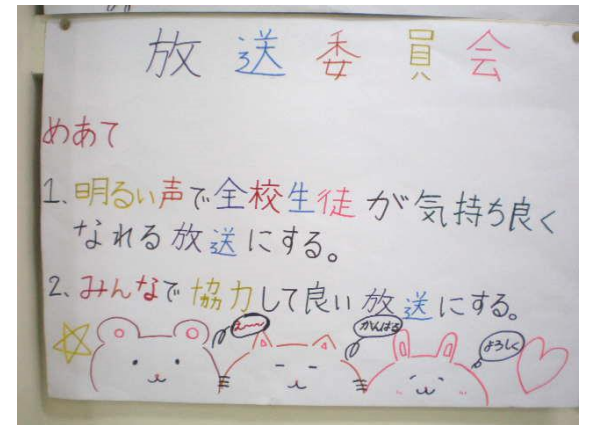 放送委員会
めあて
1、明るい声で全校生徒が気持ち良く
なれる放送にする。
2、みんなで協力して良い放送にする。
え〜〜
がんばる
よろしく